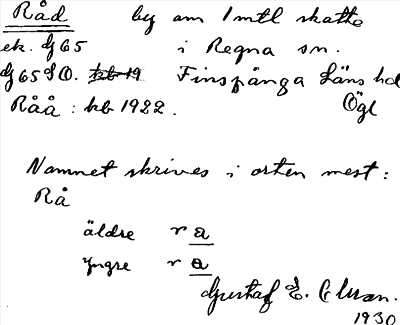 Råd by om 1 mtl skatte
ek. bl 65 i Regna sn.
bl 65 SO. kb 19 Finspånga läns hd
Råå : kb 1922. Ögl
Namnet skrives i orten mest:
Rå
äldre r a
yngre r a
Gustaf E.
1930